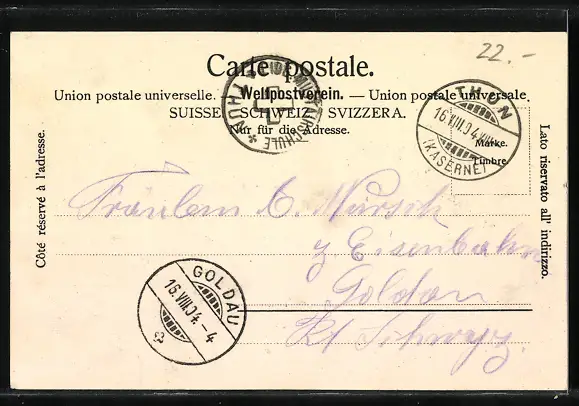 22.-
Carte postale.
Union postale universelle. — Weltpostverein. — Union postale universale
SUISSE. SCHWEIZ. SVIZZERA.
Nur für die Adresse.
THUN
16.VIII.04
(KASERNE)
Marke.
Timbre.
Côté réservé à l'adresse.
Lato riservato all' indirizzo.
Fräulein C. Mursch
z Eisenbahn
Goldau
Kt Schwyz.
GOLDAU
16.VIII.04.-4